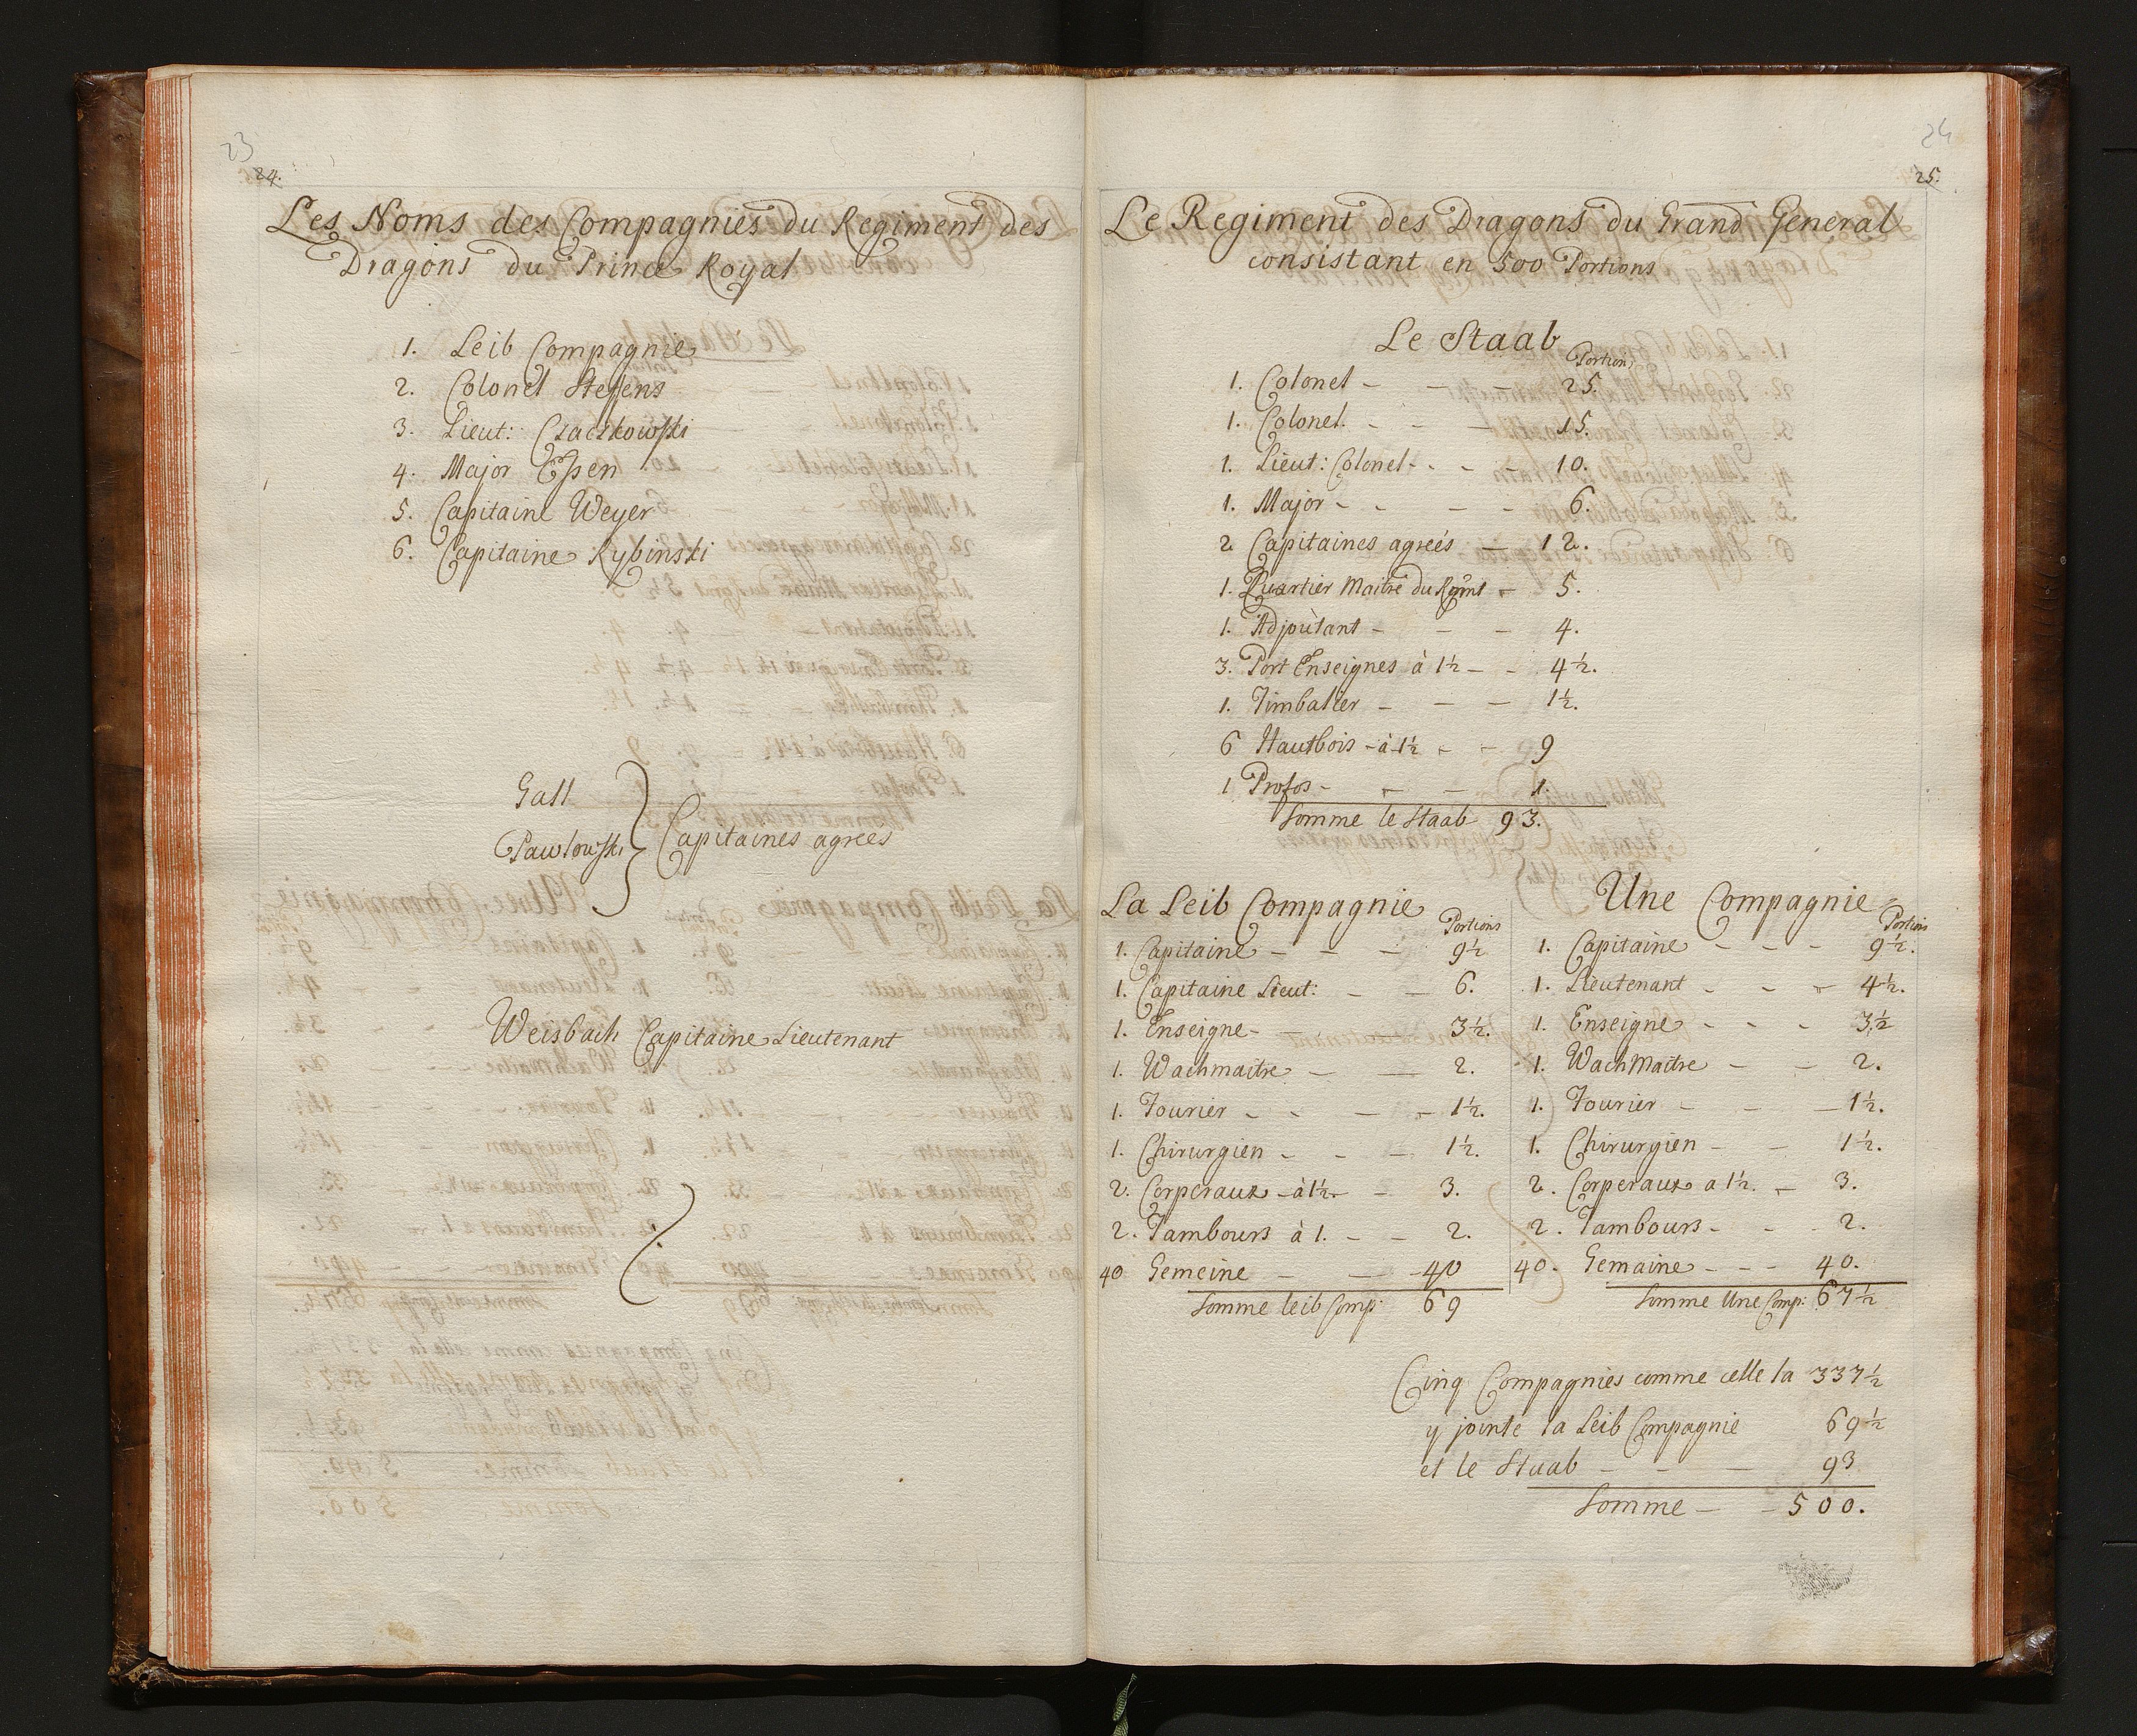 23
24.
Les Noms des Compagnies du Regiment des
Dragons du Prince Royal
1. Leib Compagnie
2. Colonel Steffens
3. Lieut: Czaczkowski
4. Major Essen
5. Capitaine Weyer
6. Capitaine Rybinski
Gall
Pawlowski
Capitaines agrees
Weisbach Capitaine Lieutenant
24
25.
Le Regiment des Dragons du Grand General
consistant en 500 Portions
Le Staab
Portions
1. Colonel - - - 25.
1. Colonel. - - - 15.
1. Lieut: Colonel - - - 10.
1. Major - - - - 6.
2 Capitaines agreés - 12.
1. Quartier Maitre du Rgmt - 5.
1. Adjoutant - - - 4.
3. Port Enseignes à 1½ - - 4½.
1. Timbalier - - - 1½.
6 Hautbois - à 1½ - - 9
1 Profos - - - 1.
Somme le Staab 93.
La Leib Compagnie
Portions
1. Capitaine - - - 9½
1. Capitaine Lieut: - - 6.
1. Enseigne - - 3½.
1. Wachmaitre - - 2.
1. Fourier - - - - 1½.
1. Chirurgien - - - 1½.
2. Corperaux - à 1½ - 3.
2. Tambours à 1. - - 2.
40 Gemeine - - - 40
Somme leib Comp: 69
Une Compagnie
Portions
1. Capitaine - - - 9½.
1. Lieutenant - - - 4½.
1. Enseigne - - - 3½
1. WachMaitre - - 2.
1. Fourier - - - 1½.
1. Chirurgien - - 1½.
2. Corperaux a 1½. - 3.
2. Tambours - - - 2.
40. Gemaine - - - 40.
Somme Une Comp: 67½
Cinq Compagnies comme celle la 337½
y jointe la Leib Compagnie 69½
et le Staab - - - 93
Somme - - 500.